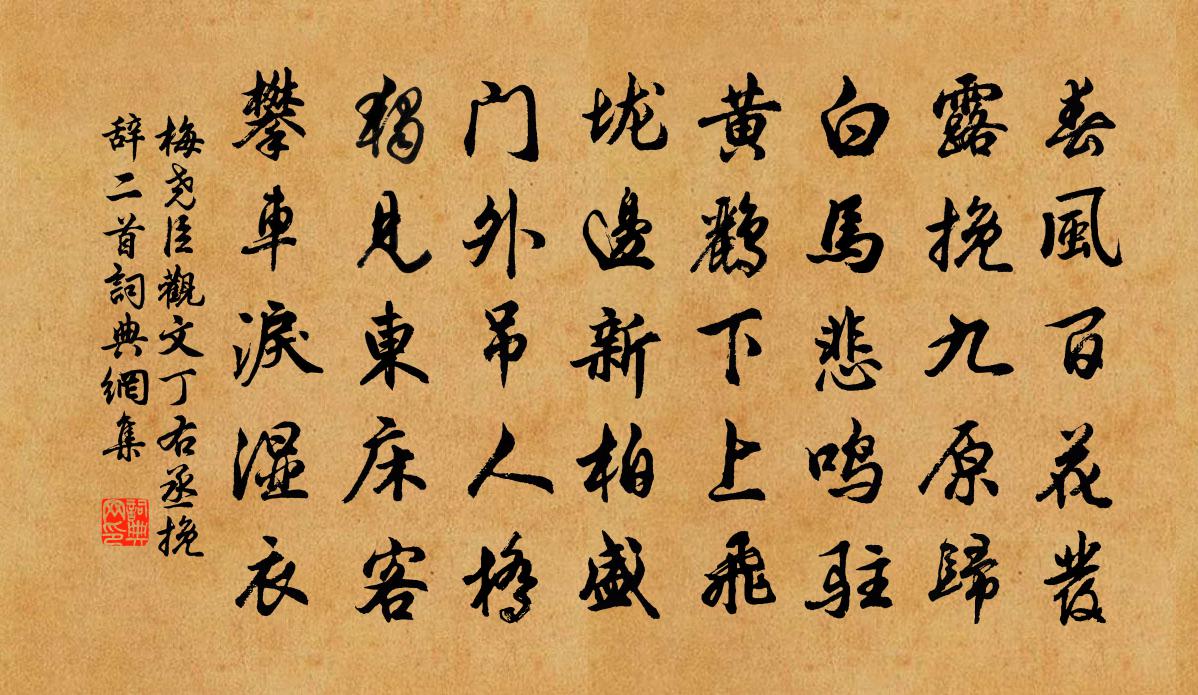 春風百花發
露挽九原歸
白馬悲鳴駐
黃鸝下上飛
垅邊新柏盛
门外吊人稀
獨見東床客
攀車淚湿衣
梅尧臣觀文丁右丞挽
辞二首詞典網集